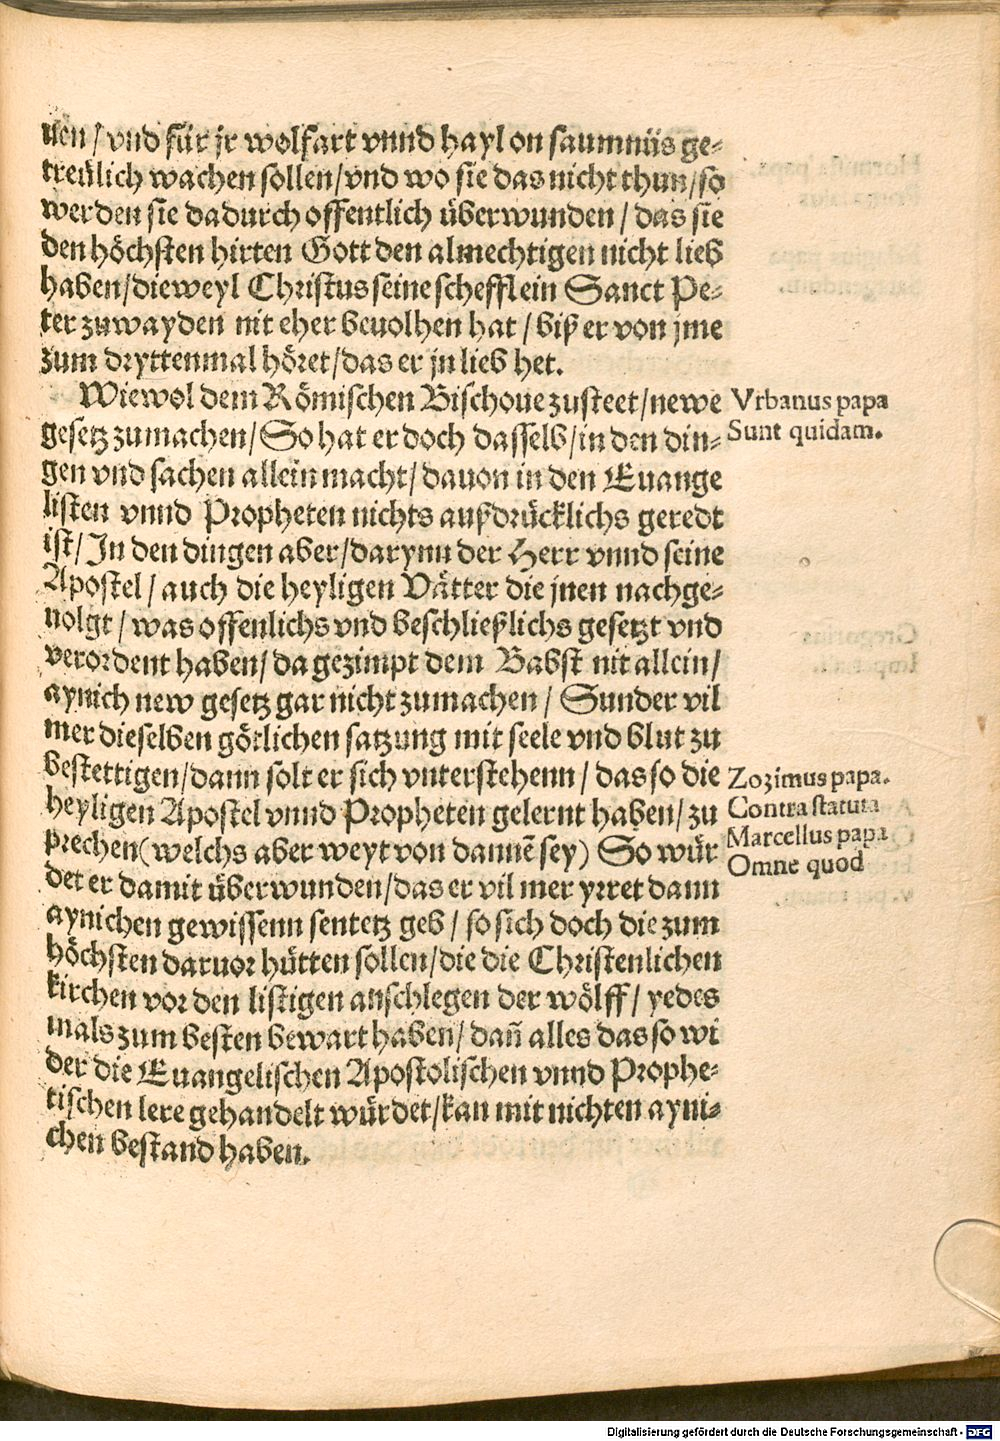 nen / vnd für jr wolfart vnnd hayl on saumnüs ge⸗
treülich wachen sollen/vnd wo sie das nicht thun/so
werden sie dadurch offentlich überwunden / das sie
den höchsten hirten Gott den almechtigen nicht lieb
haben/dieweyl Christus seine schefflein Sanct Pe⸗
ter zuwayden nit eher beuolhen hat / biß er von jme
zum dryttenmal höret/das er jn lieb het.
Wiewol dem Römischen Bischoue zusteet/newe
gesetz zumachen/So hat er doch dasselb/in den din⸗
gen vnd sachen allein macht/dauon in den Euange
listen vnnd Propheten nichts außdrücklichs geredt
ist/In den dingen aber/darynn der Herr vnnd seine
Apostel/auch die heyligen Vätter die jnen nachge⸗
uolgt/was offenlichs vnd beschließlichs gesetzt vnd
verordent haben/da gezimpt dem Babst nit allein/
aynich new gesetz gar nicht zumachen/Sunder vil
mer dieselben götlichen satzung mit seele vnd blut zu
bestettigen/dann solt er sich vnterstehenn/das so die
heyligen Apostel vnnd Propheten gelernt haben/zu
prechen(welchs aber weyt von dannē sey) So wür
det er damit überwunden/das er vil mer yrret dann
aynichen gewissenn sentetz geb/so sich doch die zum
höchsten daruor hütten sollen/die die Christenlichen
kirchen vor den listigen anschlegen der wölff/yedes
mals zum besten bewart haben/dañ alles das so wi
der die Euangelischen Apostolischen vnnd Prophe⸗
tischen lere gehandelt würdet/kan mit nichten ayni⸗
chen bestand haben.
Vrbanus papa
Sunt quidam.
Zozimus papa.
Contra statuta
Marcellus papa
Omne quod
Digitalisierung gefördert durch die Deutsche Forschungsgemeinschaft - DFG